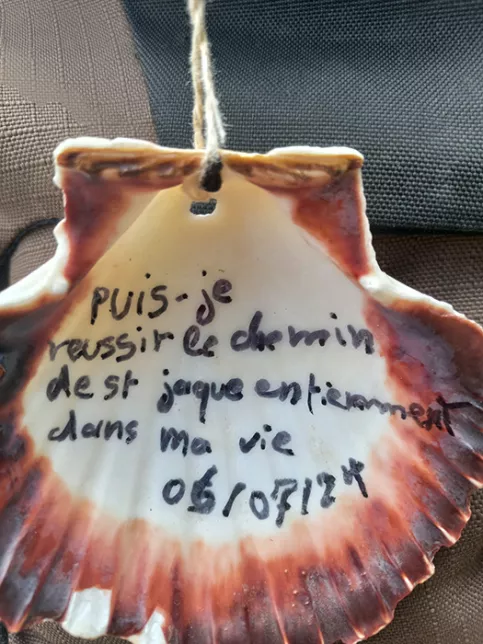 PUIS-je
reussir le chemin
de st jaque entierемment
dans ma vie
06/07/24